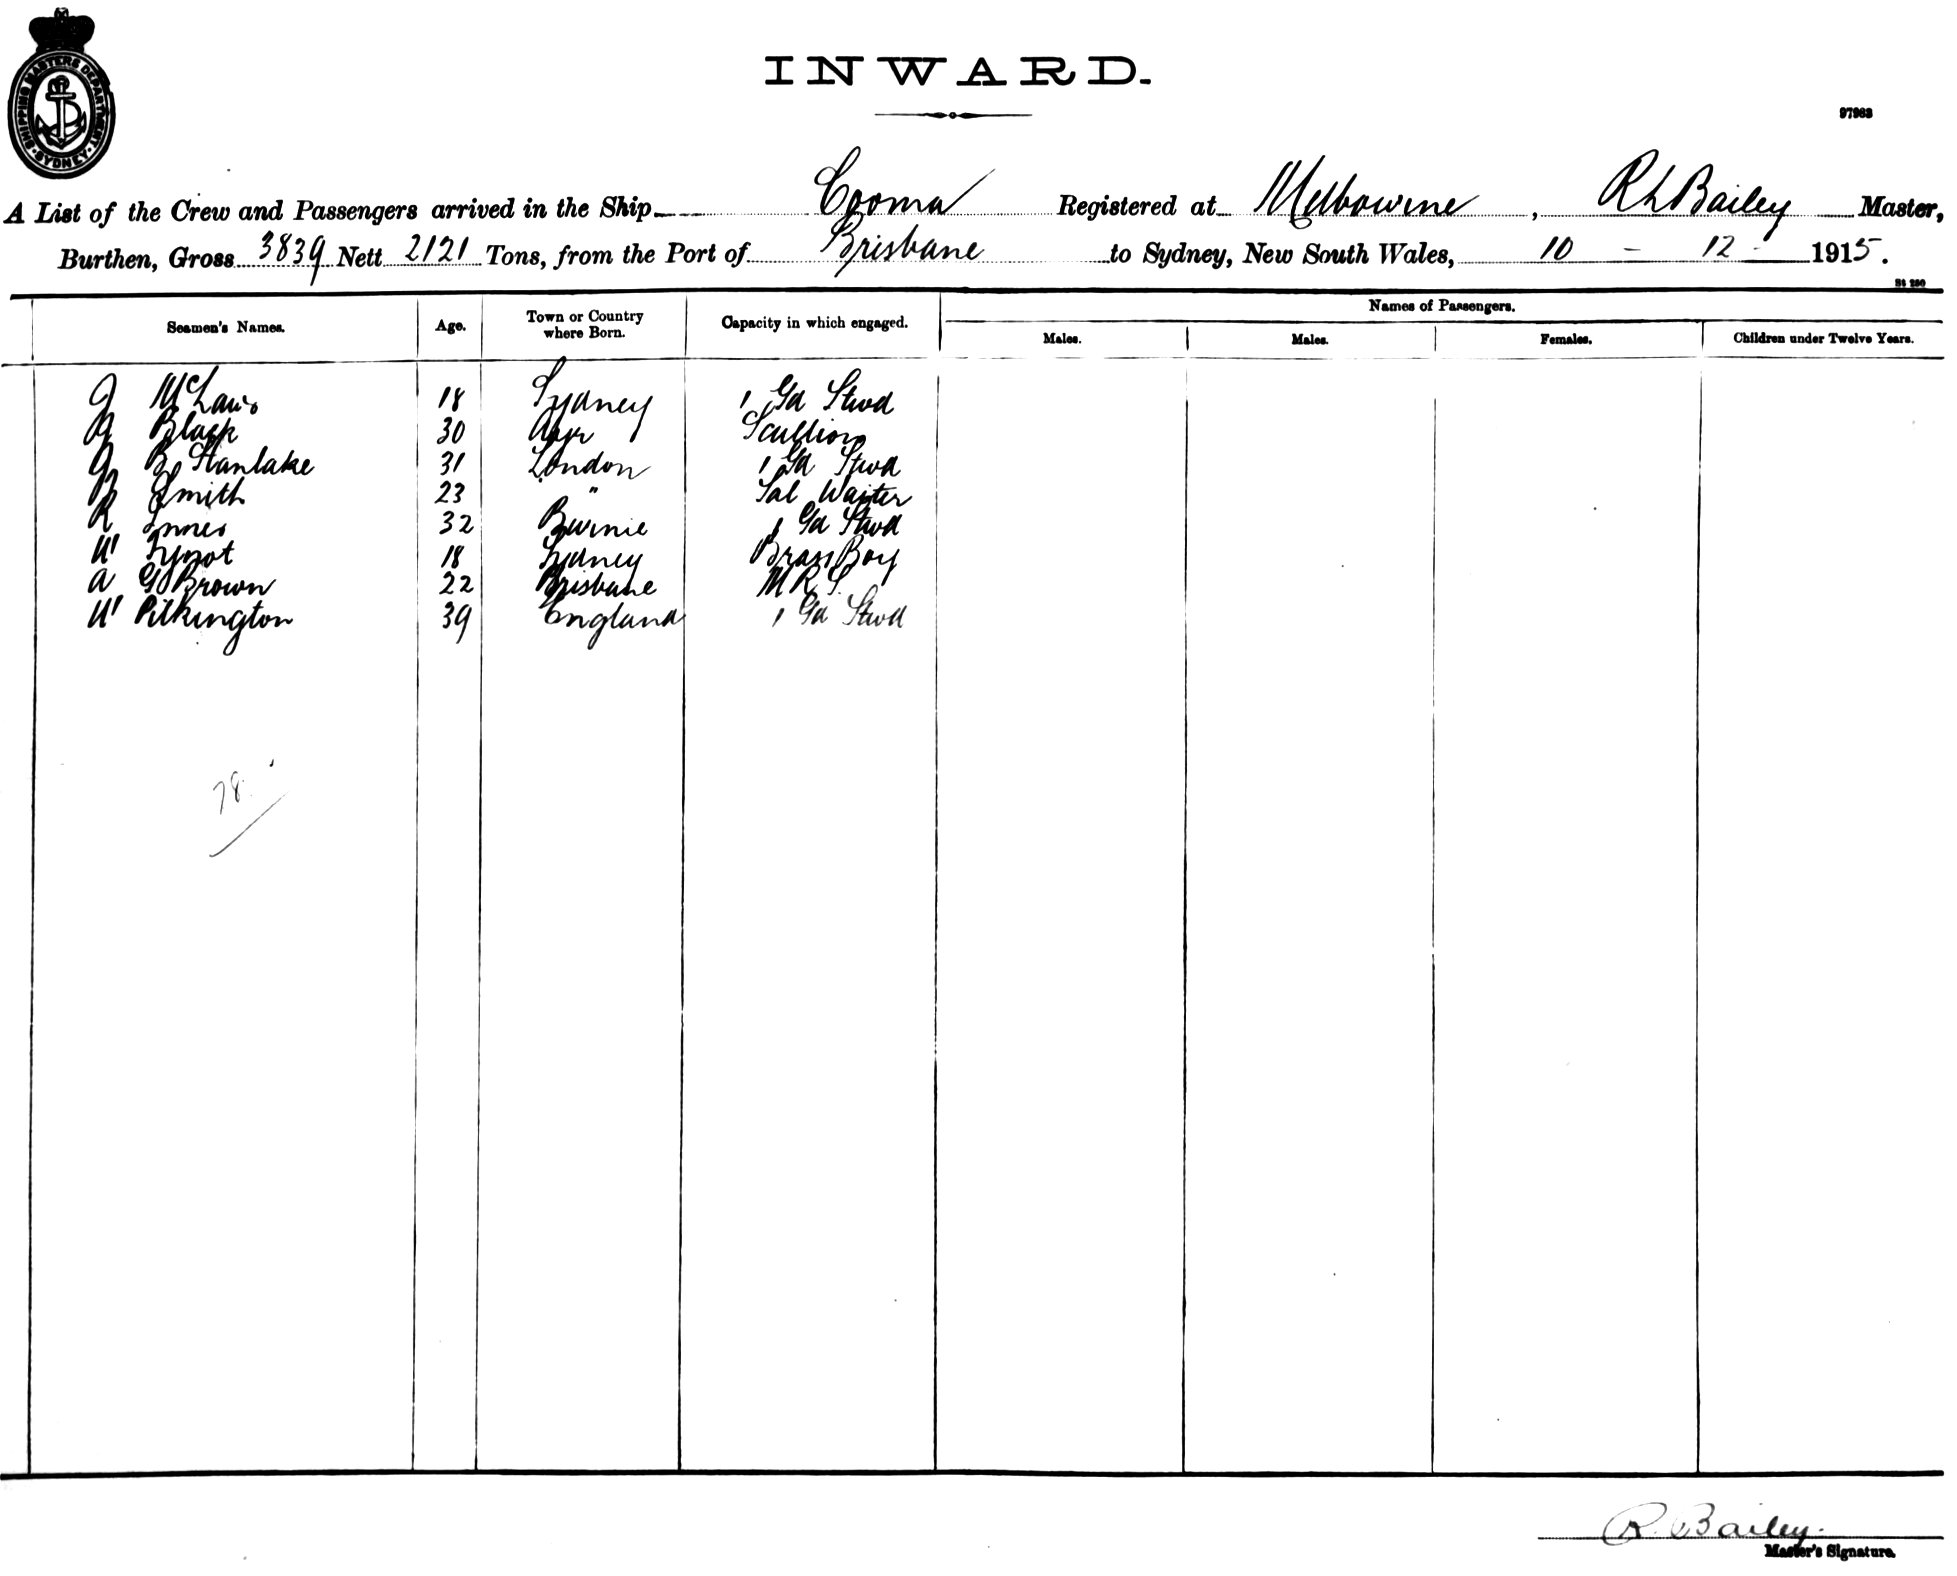 SHIPPING MASTERS DEPARTMENT SYDNEY
INWARD.
97963
A List of the Crew and Passengers arrived in the Ship Cooma Registered at Melbourne, R L Bailey Master,
Burthen, Gross 3839 Nett 2121 Tons, from the Port of Brisbane to Sydney, New South Wales, 10 - 12 - 1915.
St 250
Seamen's Names. Age. Town or Country where Born. Capacity in which engaged. Names of Passengers.
Males. Males. Females. Children under Twelve Years.
J McLaws 18 Sydney 1 Gd Stwd
Black 30 Ayr Scullion
J B Stanlake 31 London 1 Gd Stwd
Smith 23 " Sal Waiter
R Innes 32 Burnie 1 Gd Stwd
W 18 Sydney Brass Boy
A G Brown 22 Brisbane M R S.
W Pilkington 39 England 1 Gd Stwd
78
R. L Bailey.
Master's Signature.